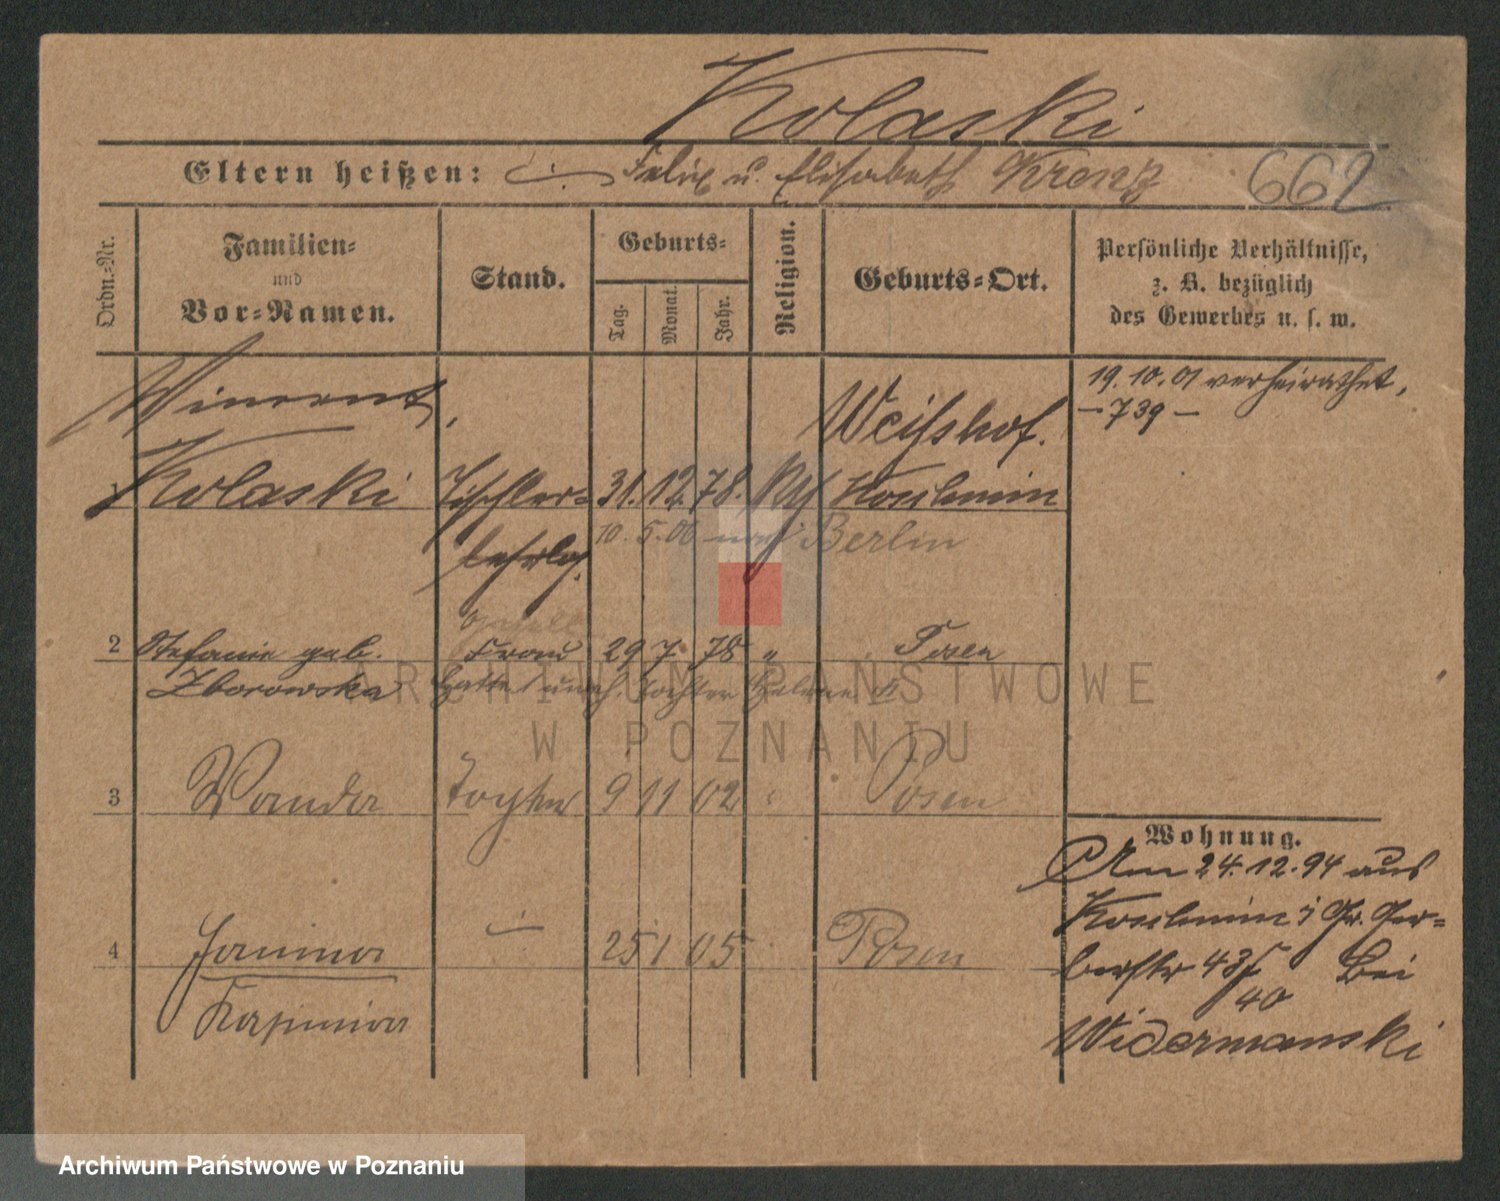 Kolaski
Eltern heißen: Felix u. Elisabeth Krenz 662
Ordn.-Nr.
Familien-
und
Vor-Namen.
Stand.
Geburts-
Tag.
Monat.
Jahr.
Religion.
Geburts-Ort.
Persönliche Verhältnisse,
z. B. bezüglich
des Gewerbes u. s. w.
Vincent, Weißhof. 19.10.01 verheirathet,
– 739 –
1 Kolaski Tischler- 31. 12. 78. kath Koschmin
10. 5. 06 nach Berlin
lehrlg.
2 Stefanie geb. Frau 29 7. 78 " Posen
Zborowska Tochter
3 Wanda Tochter 9 11 02 " Posen
Wohnung.
Am 24.12.94 aus
Koschmin Gr. Ger-
4 Janina 25 1 05 Posen
berstr 43 Bei
40
Kasimira
Widermanski
ARCHIWUM PAŃSTWOWE
W POZNANIU
Archiwum Państwowe w Poznaniu